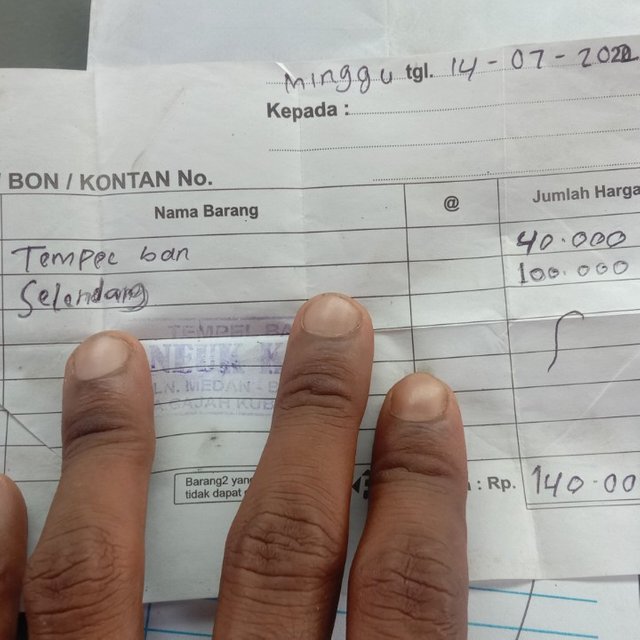 Minggu tgl. 14-07-202
Kepada :
BON / KONTAN No.
Nama Barang @ Jumlah Harga
Tempel ban 40.000
Selendang 100.000
TEMPEL BA
NEUK K
LN. MEDAN - B
GAJAH KUB
Barang2 yang
tidak dapat
: Rp. 140.00